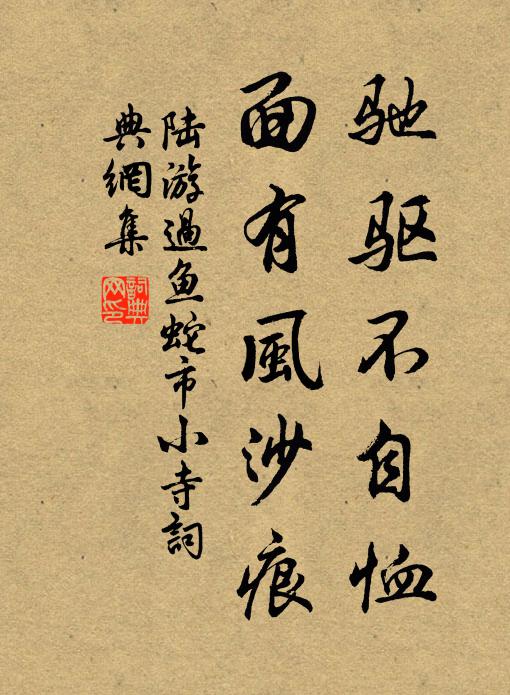 驰驱不自恤
面有風沙痕
陆游過鱼蛇市小寺詞
典網集
詞典网印